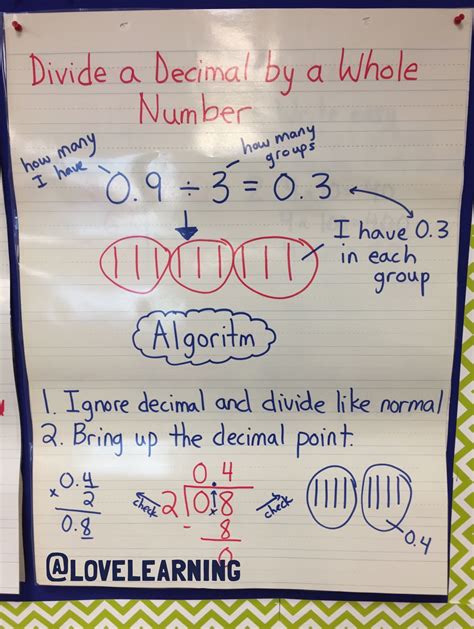 Divide a Decimal by a Whole
Number
how many
I have
how many
groups
0.9 ÷ 3 = 0.3
I have 0.3
in each
group
Algoritm
1. Ignore decimal and divide like normal
2. Bring up the decimal point.
0.4
× 2
0.8
check
0.4
2 0.8
- 8
0
check
0.4
@LOVELEARNING